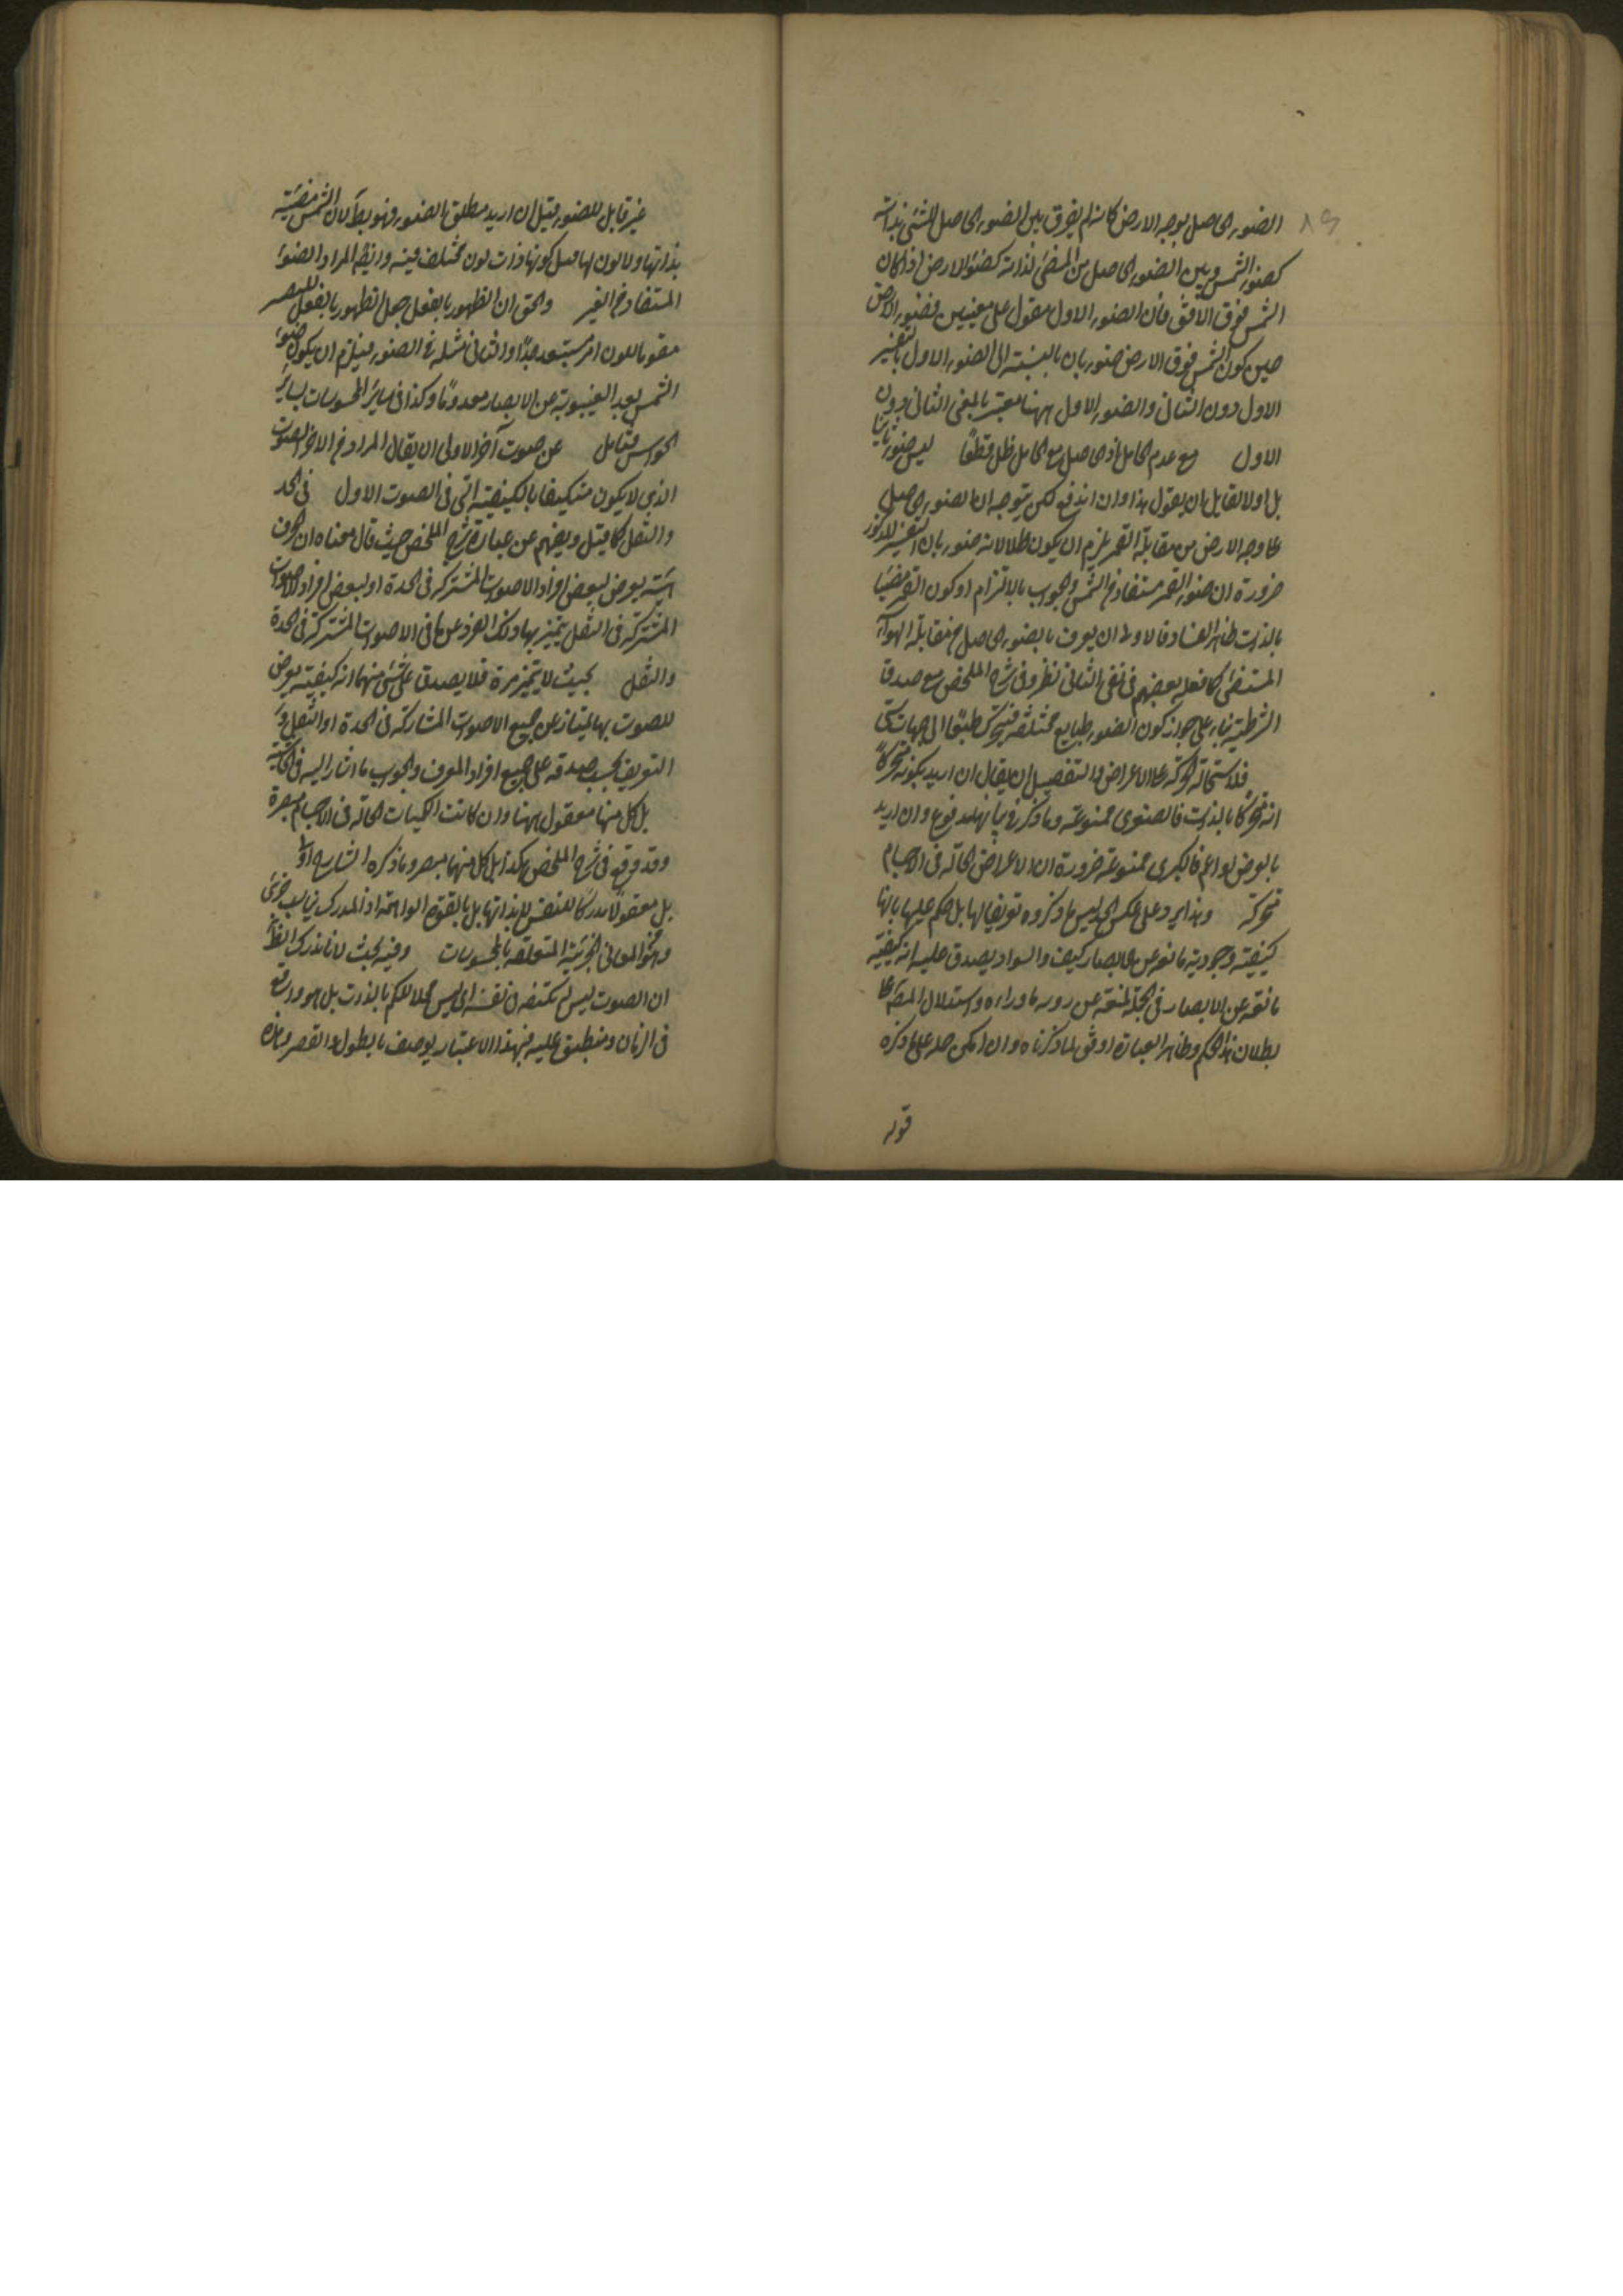 الضوء الحاصل بوجه الارض كانه لم يفرق بين الضوء الحاصل للشئ بذاته
كضوء الشمس وبين الضوء الحاصل من المضئ لذاته كضوء الارض اذا كان
الشمس فوق الافق فان الضوء الاول مقول على معنيين فضوء الارض
حين كون الشمس فوق الارض ضوء ثان بالنسبة الى الضوء الاول بالتفسير
الاول دون الثانى والضوء الاول ههنا معتبر بالمعنى الثانى دون
الاول مع عدم الحامل اذ الحاصل مع الحامل ظل قطعا ليس ضوء ثانيا
بل اولا لقابل ان يقول هذا وان اندفع لكن يتوجه ان الضوء الحاصل
على وجه الارض من مقابلة القمر يلزم ان يكون ظلا لانه ضوء ثان بالتفسير المذكور
ضرورة ان ضوء القمر مستفاد من الشمس والجواب بالالتزام او كون القمر مضيئا
بالذات ظاهر الفساد فالاولى ان يعرف بالضوء الحاصل من مقابلة الهواء
المستضئ كما فعله بعضهم فى نفى الثانى نظر وفى شرح الملخص مع صدق
الشرطية بناء على جواز كون الضوء طبايع مختلفة فيتحرك طبقا الى جهات شتى
فلاستحالة الحركة على الاعراض والتفصيل ان يقال ان اريد بكونه متحركا
انه متحركا بالذات فالصغرى ممنوعة وما ذكر فى بيانها مدفوع وان اريد
بالعرض او اعم فالكبرى ممنوعة ضرورة ان الاعراض الحالة فى الاجسام
متحركة وهذا يرد على عكس الحد ليس ما ذكروه تعريفا لها بل حكم عليها بانها
كيفية وجودية مانعة عن الابصار كيف والسواد يصدق عليه انه كيفية
مانعة عن الابصار فى الجملة لمنعه عن روية ما وراءه واستدلال المص على
بطلان هذا الحكم وظاهر العبارة اوفق لما ذكرناه وان امكن حمله على ما ذكره
قوله
غير قابل للضوء قيل ان اريد مطلق الضوء فهو بط لان الشمس مضيئة
بذاتها ولا لون لها قيل كونها ذات لون مختلف فيه وايضا المراد الضوء
المستفاد من الغير والحق ان الظهور بالفعل جعل الظهور بالفعل للبصر
مقوما للون امر مستبعد جدا والثانى مثله فى الضوء فيلزم ان يكون ضوء
الشمس بعد الغيبوبة عن الابصار معدوما وكذا فى ساير المحسوسات بساير
الحواس فتامل عن صوت آخر الاولى ان يقال المراد من الاخر الصوت
الذى لا يكون متكيفا بالكيفية التى فى الصوت الاول فى الحد
والثقل كما قيل ويفهم عن عبارة شرح الملخص حيث قال معناه ان الحرف
هيئة يعرض لبعض افراد الاصوات المشتركة فى الحدة او لبعض افراد الاصوات
المشتركة فى الثقل يتميز بها ذلك الفرد عن ما فى الاصوات المشتركة فى الحدة
والثقل بحيث لا يتميز مرة فلا يصدق على شئ منهما انه كيفية يعرض
للصوت بها يمتاز عن جميع الاصوات المشاركة فى الحدة او الثقل و
التعريف يجب صدقه على جميع افراد المعرف والجواب ما اشار اليه فى الحاشية
بل كل منها معقول ههنا وان كانت الكميات الحالة فى الاجسام مبصرة
وقد وقع فى شرح الملخص هكذا بل كل منهما مبصر وما ذكره الشارح اولى
بل معقولا مدركا للنفس لا بذاتها بل بالقوة الواهمة اذ المدرك
ونحو المعانى الجزئية المتعلقة بالمحسوسات وفيه بحث لانا ندرك ايضا
ان الصوت ليس لم يكتنفه فى نفسه اى ليس محلا للكم بالذات بل هو واقع
فى الزمان ومنطبق عليه فبهذا الاعتبار يوصف بالطول والقصر وهذه